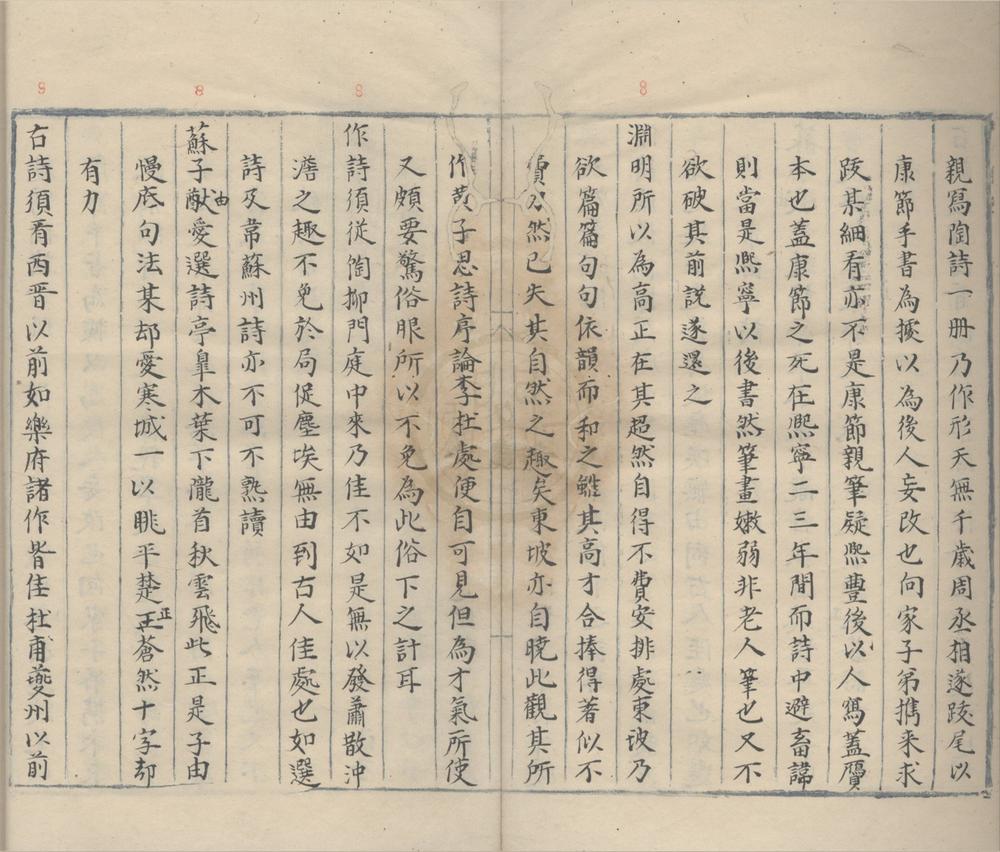 親寫陶詩一冊乃作形天無千歲周丞相遂跋尾以
康節手書為據以為後人妄改也向家子弟携来求
跋某細看亦不是康節親筆疑熙豐後以人寫蓋贋
本也蓋康節之死在熙寧二三年間而詩中避畜諱
則當是熙寧以後書然筆畫嫩弱非老人筆也又不
欲破其前説遂還之
淵明所以為高正在其超然自得不費安排處東坡乃
欲篇篇句句依韻而和之雖其高才合揍得著似不
費力然已失其自然之趣矣東坡亦自曉此觀其所
作黄子思詩序論李杜處便自可見但為才氣所使
又頗要驚俗眼所以不免為此俗下之計耳
作詩須從陶柳門庭中來乃佳不如是無以發蕭散沖
澹之趣不免於局促塵埃無由到古人佳處也如選
詩及韋蘇州詩亦不可不熟讀
蘇子由愛選詩亭臯木葉下隴首秋雲飛此正是子由
慢底句法某却愛寒城一以眺平楚正蒼然十字却
有力
古詩須看西晋以前如樂府諸作皆佳杜甫夔州以前